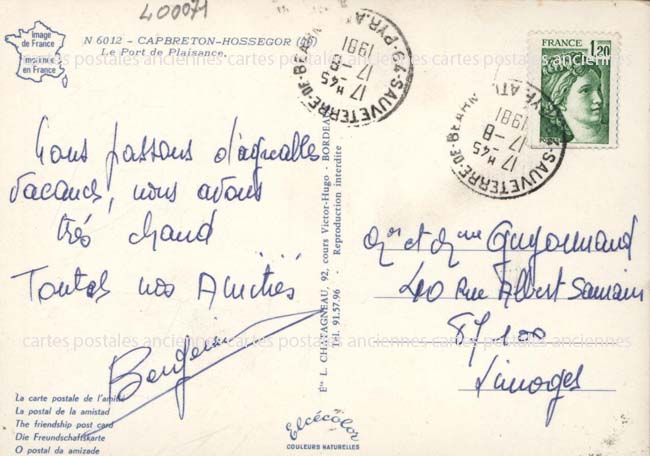 400071
Image
de France
Imprimée
en France
N 6012 - CAPBRETON-HOSSEGOR (40)
Le Port de Plaisance.
Nous passons d'agréables
vacances, nous avons
très chaud
Toutes nos Amitiés
La carte postale de l'amitié
La postal de la amistad
The friendship post card
Die Freundschaftskarte
O postal da amizade
Éts L. CHATAGNEAU, 92, cours Victor-Hugo - BORDEAUX
Tél. 91.57.96 - Reproduction interdite
Elcécolor
COULEURS NATURELLES
64 SAUVETERRE-DE-BEARN PYR.ATL
17 H 45
17-8
1981
64 SAUVETERRE-DE-BEARN PYR.ATL
17 H 45
17-8
1981
FRANCE 1,20
Mr et Mme Guyonnaud
40 Rue Albert Samain
87100
Limoges
cartes postales anciennes cartes postales anciennes cartes postales anciennes cartes postales anciennes